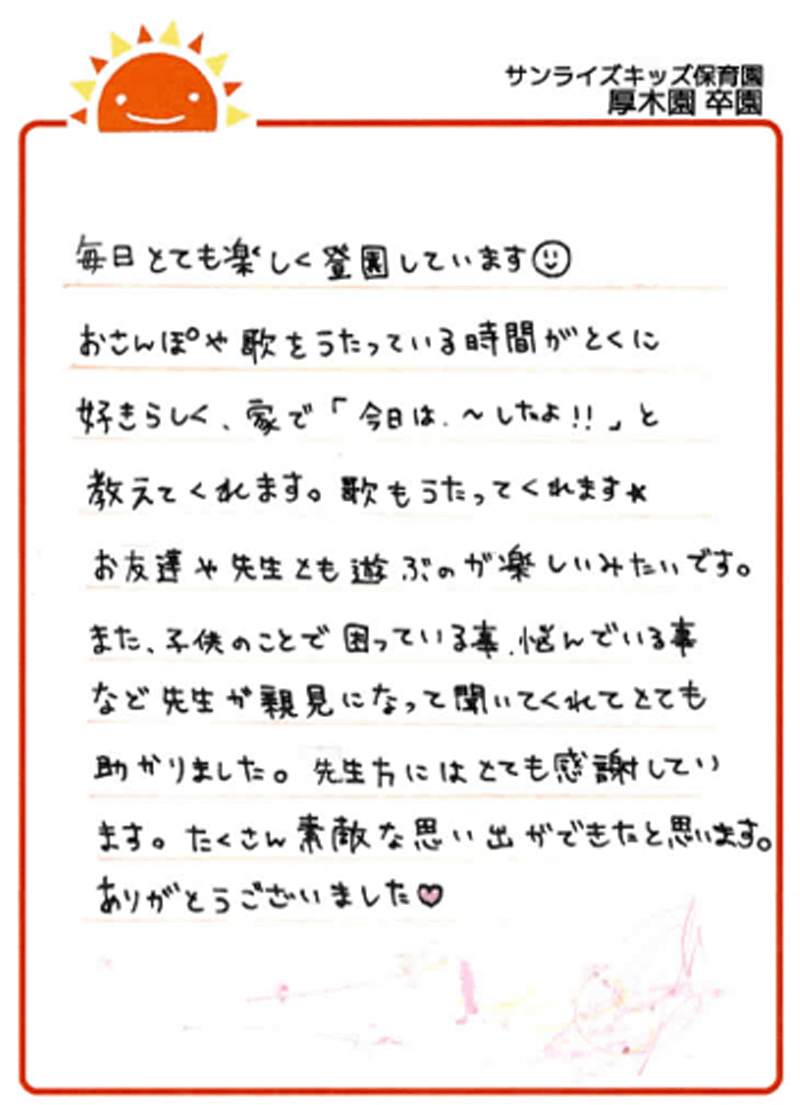 サンライズキッズ保育園
厚木園 卒園
毎日とても楽しく登園しています☺
おさんぽや歌をうたっている時間がとくに
好きらしく、家で「今日は、～したよ!!」と
教えてくれます。歌もうたってくれます★
お友達や先生とも遊ぶのが楽しいみたいです。
また、子供のことで困っている事、悩んでいる事
など先生が親見になって聞いてくれてとても
助かりました。先生方にはとても感謝してい
ます。たくさん素敵な思い出ができたと思います。
ありがとうございました♥